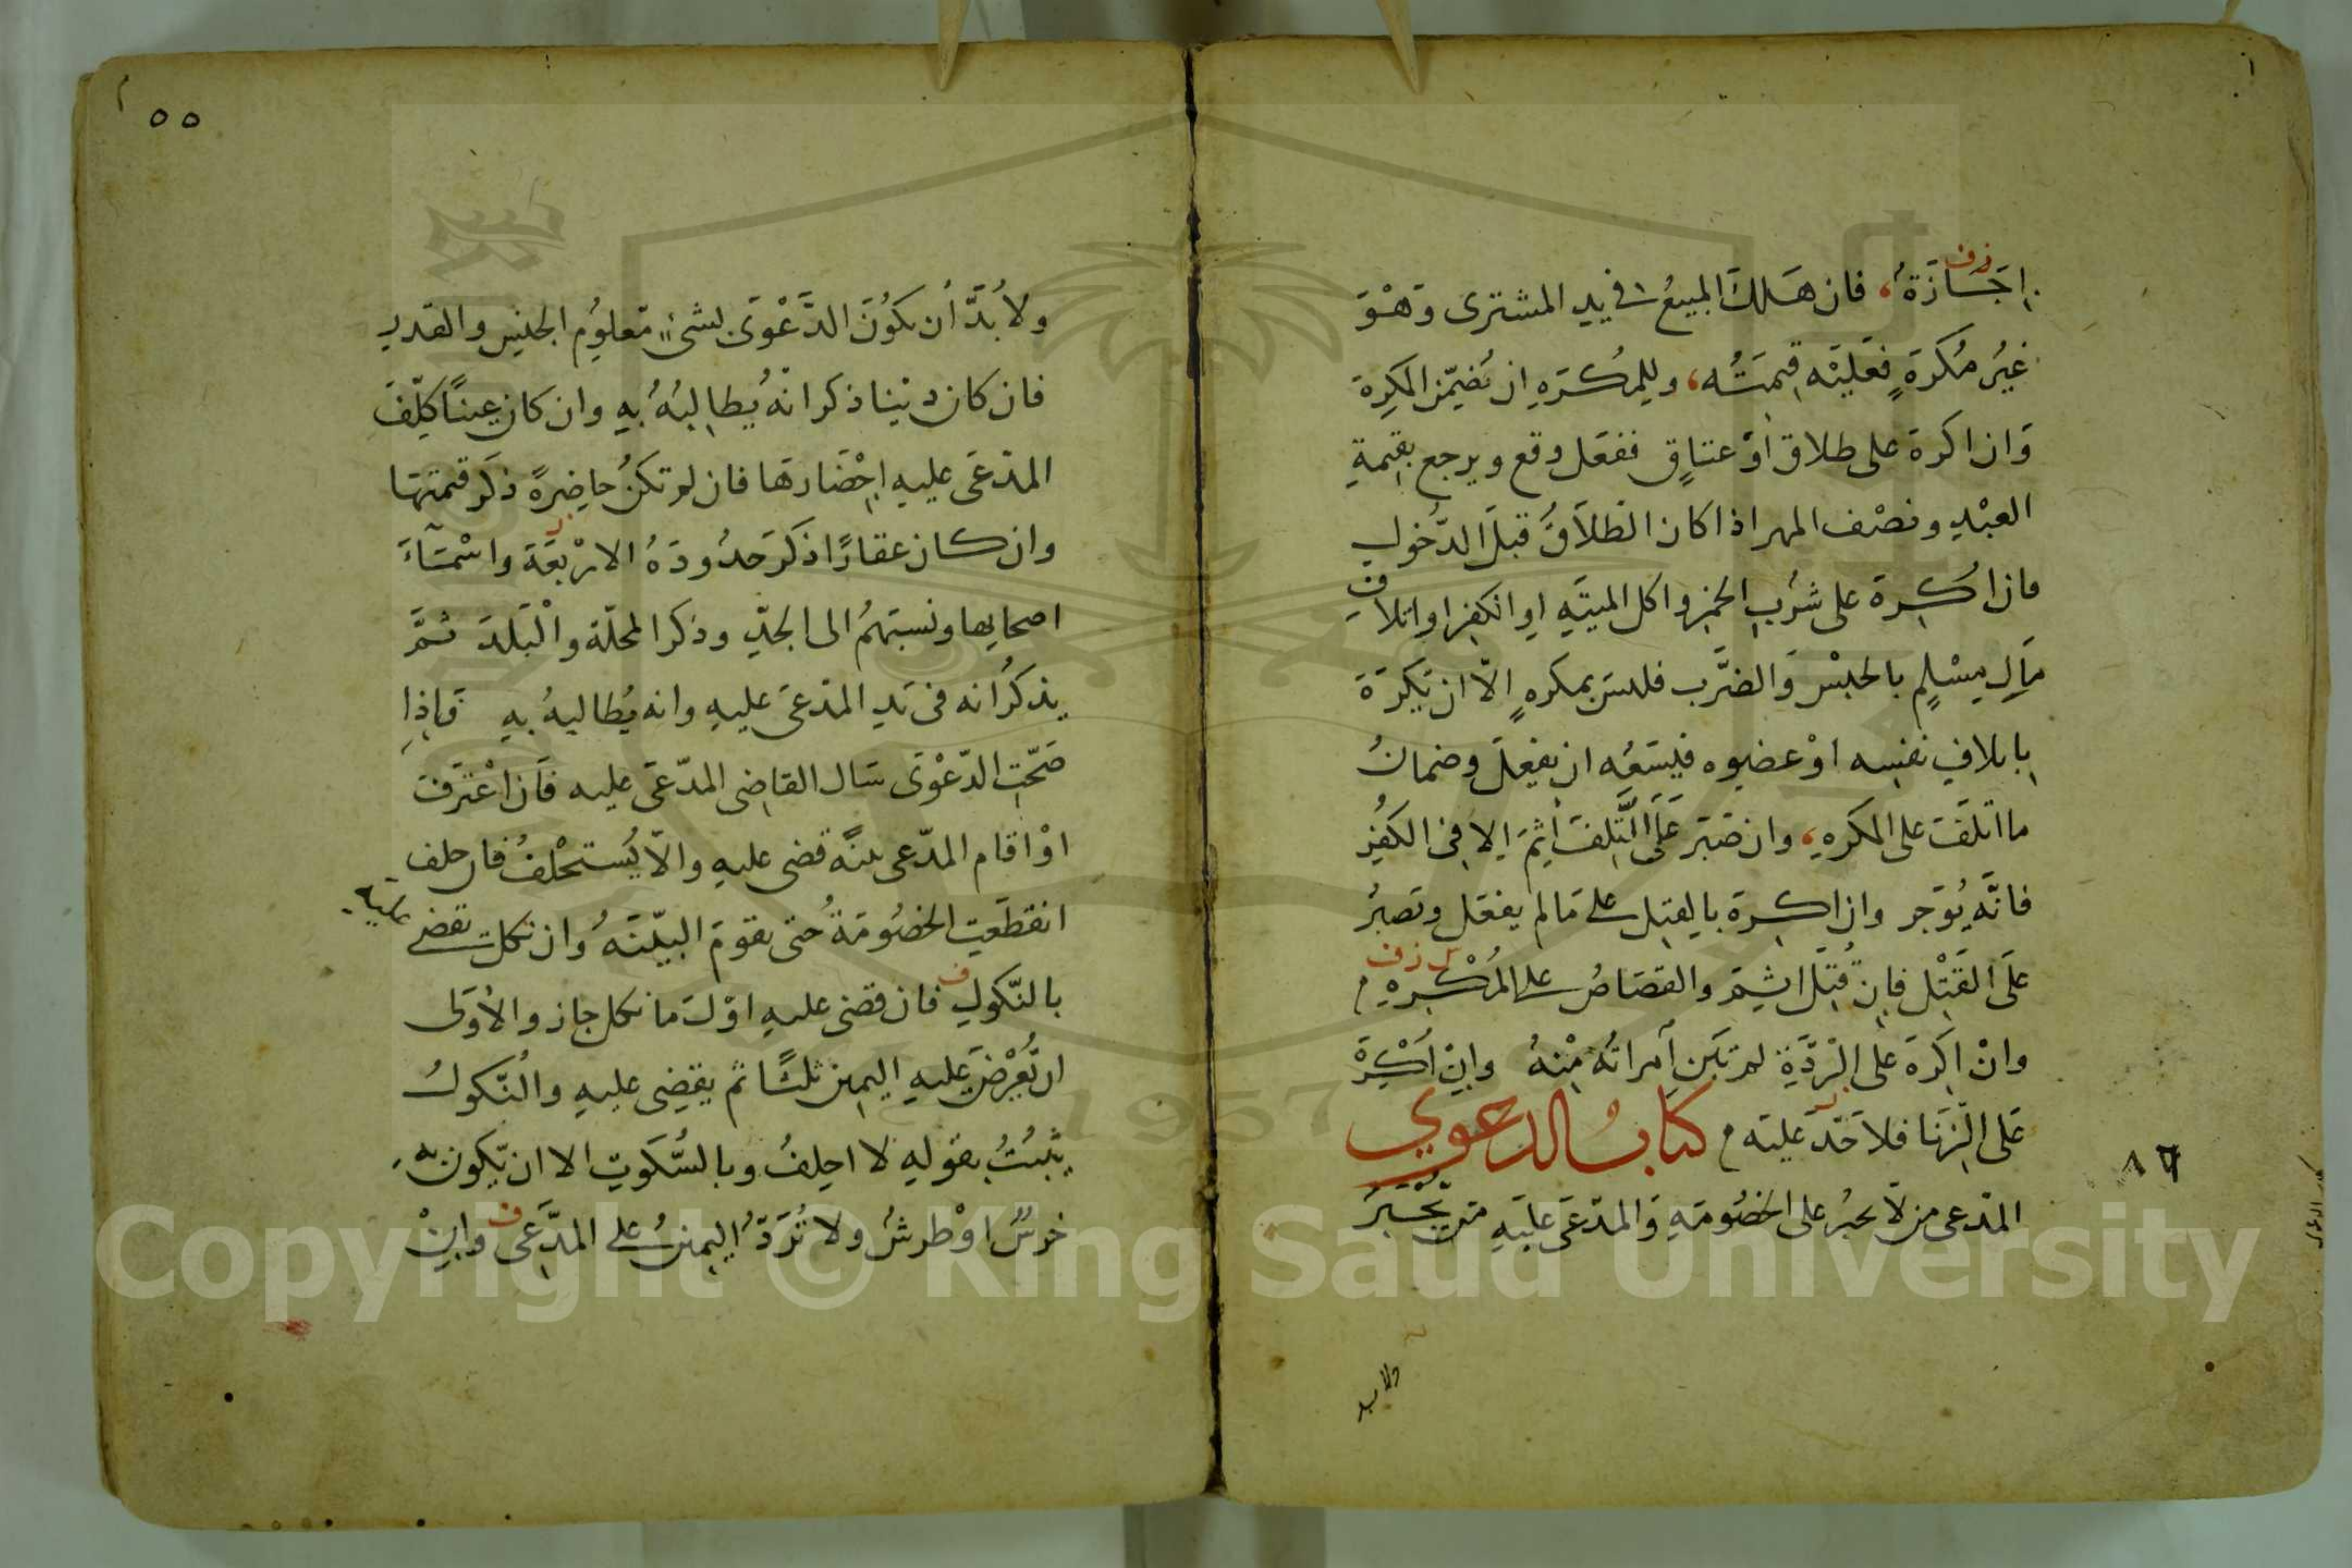 اِجَازَةٌ، فان هَلك المبيعُ فى يدِ المشترى وَهُوَ
غيرُ مُكرَهٍ فعَليْه قِيمَتُه، وللمُكرَهِ ان يُضَمِّنَ المكرِهَ
وَان اكره على طلاق اَوْ عتاقٍ ففعَل وقع ويرجع بقيمةِ
العبْدِ ونصْف المهر اذا كان الطلاَقُ قبلَ الدُّخولِ
فان اُكرهَ على شُربِ الخمرِ واكل الميتَهِ اوِ الكفرِ او اتلافِ
مَالِ مسْلمٍ بالحبْسِ وَالضَّرب فليسَ بمكرهٍ الاّ ان يَكرَهَ
باتلافِ نفسِه اوْ عضوِه فيسَعُه ان يفعلَ وضمانُ
ما اتلفَ على المكرهِ، وان صَبَر عَلَى التَّلفَ اَثِمَ اِلا فِى الكفُرِ
فانَّه يُوَجر وان اكرهَ بالقتلِ على مَا لم يفعَل وتصبرُ
علَى القَتْلِ فاِن قُتِلَ اثِمَ والقصَاصُ على المُكْرِهِ
وانْ اكرَهَ على الرِّدَّةِ لم تَبِن اَمراتُه مِنْهُ وانْ اُكْرِهَ
عَلى الزِّنَا فلاَحَدَّ عليَه م كتابُ الدعوي
المدّعى من لاَ يجبُر على الخصُومَهِ وَالمدّعَى عَليَهِ مَن يُجْبَرُ
ولا بد
٥٥
ولا بُدَّ أن يكوُنَ الدَّعْوَى بشئٍ مَعلوُمِ الجنسِ والقدرِ
فان كان دَيْنا ذكر انَّهُ يُطالِبُهُ بهِ وان كان عينًا كلّفَ
المدّعَى عليهِ اِحْضَارهَا فان لم تكنُ حاضِرةً ذكر قيمتهَا
وان كان عقارًا ذكَر حَدُودَهُ الارْبعَةَ واسْمَآءَ
اصحابها ونسَبَهمُ الى الجدِّ وذكر المحلّة والْبَلدَ ثمَّ
يذكرُ انه فى يَدِ المدّعَى عليهِ وانه يُطَالبهُ بهِ فاذا
صَحّت الدّعْوَى سَال القاضِى المدّعَى عليه فَان اعْترَفَ
اوْ اقام المدّعى بينةً قضى عليهِ والاّ يُستحْلفُ فان حلف
انقطَعَتِ الخصُومَةُ حُتى يقومَ البيّنَهُ وان نكل يقضى عليه
بالنّكولِ فان قضى عليهِ اوّلَ ما نكل جاز والاُوَلى
ان يُّعْرضَ عليهِ اليمين ثلثًا ثم يقضِى عليهِ والنّكولُ
يثبُتُ بقولهِ لا احلِفُ وبالسُّكوتِ الا ان يّكون به
خرسٌ اوْ طرشٌ ولا تُرَدّ اليمينُ على المدَّعِى وانْ